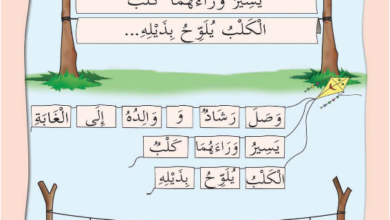 يَسِيرُ وَرَاءَهُمَا كَلْبٌ
الْكَلْبُ يُلَوِّحُ بِذَيْلِهِ...
وَصَلَ رَشَادٌ وَ وَالِدُهُ إِلَى الْغَابَةِ
يَسِيرُ وَرَاءَهُمَا كَلْبٌ
الْكَلْبُ يُلَوِّحُ بِذَيْلِهِ